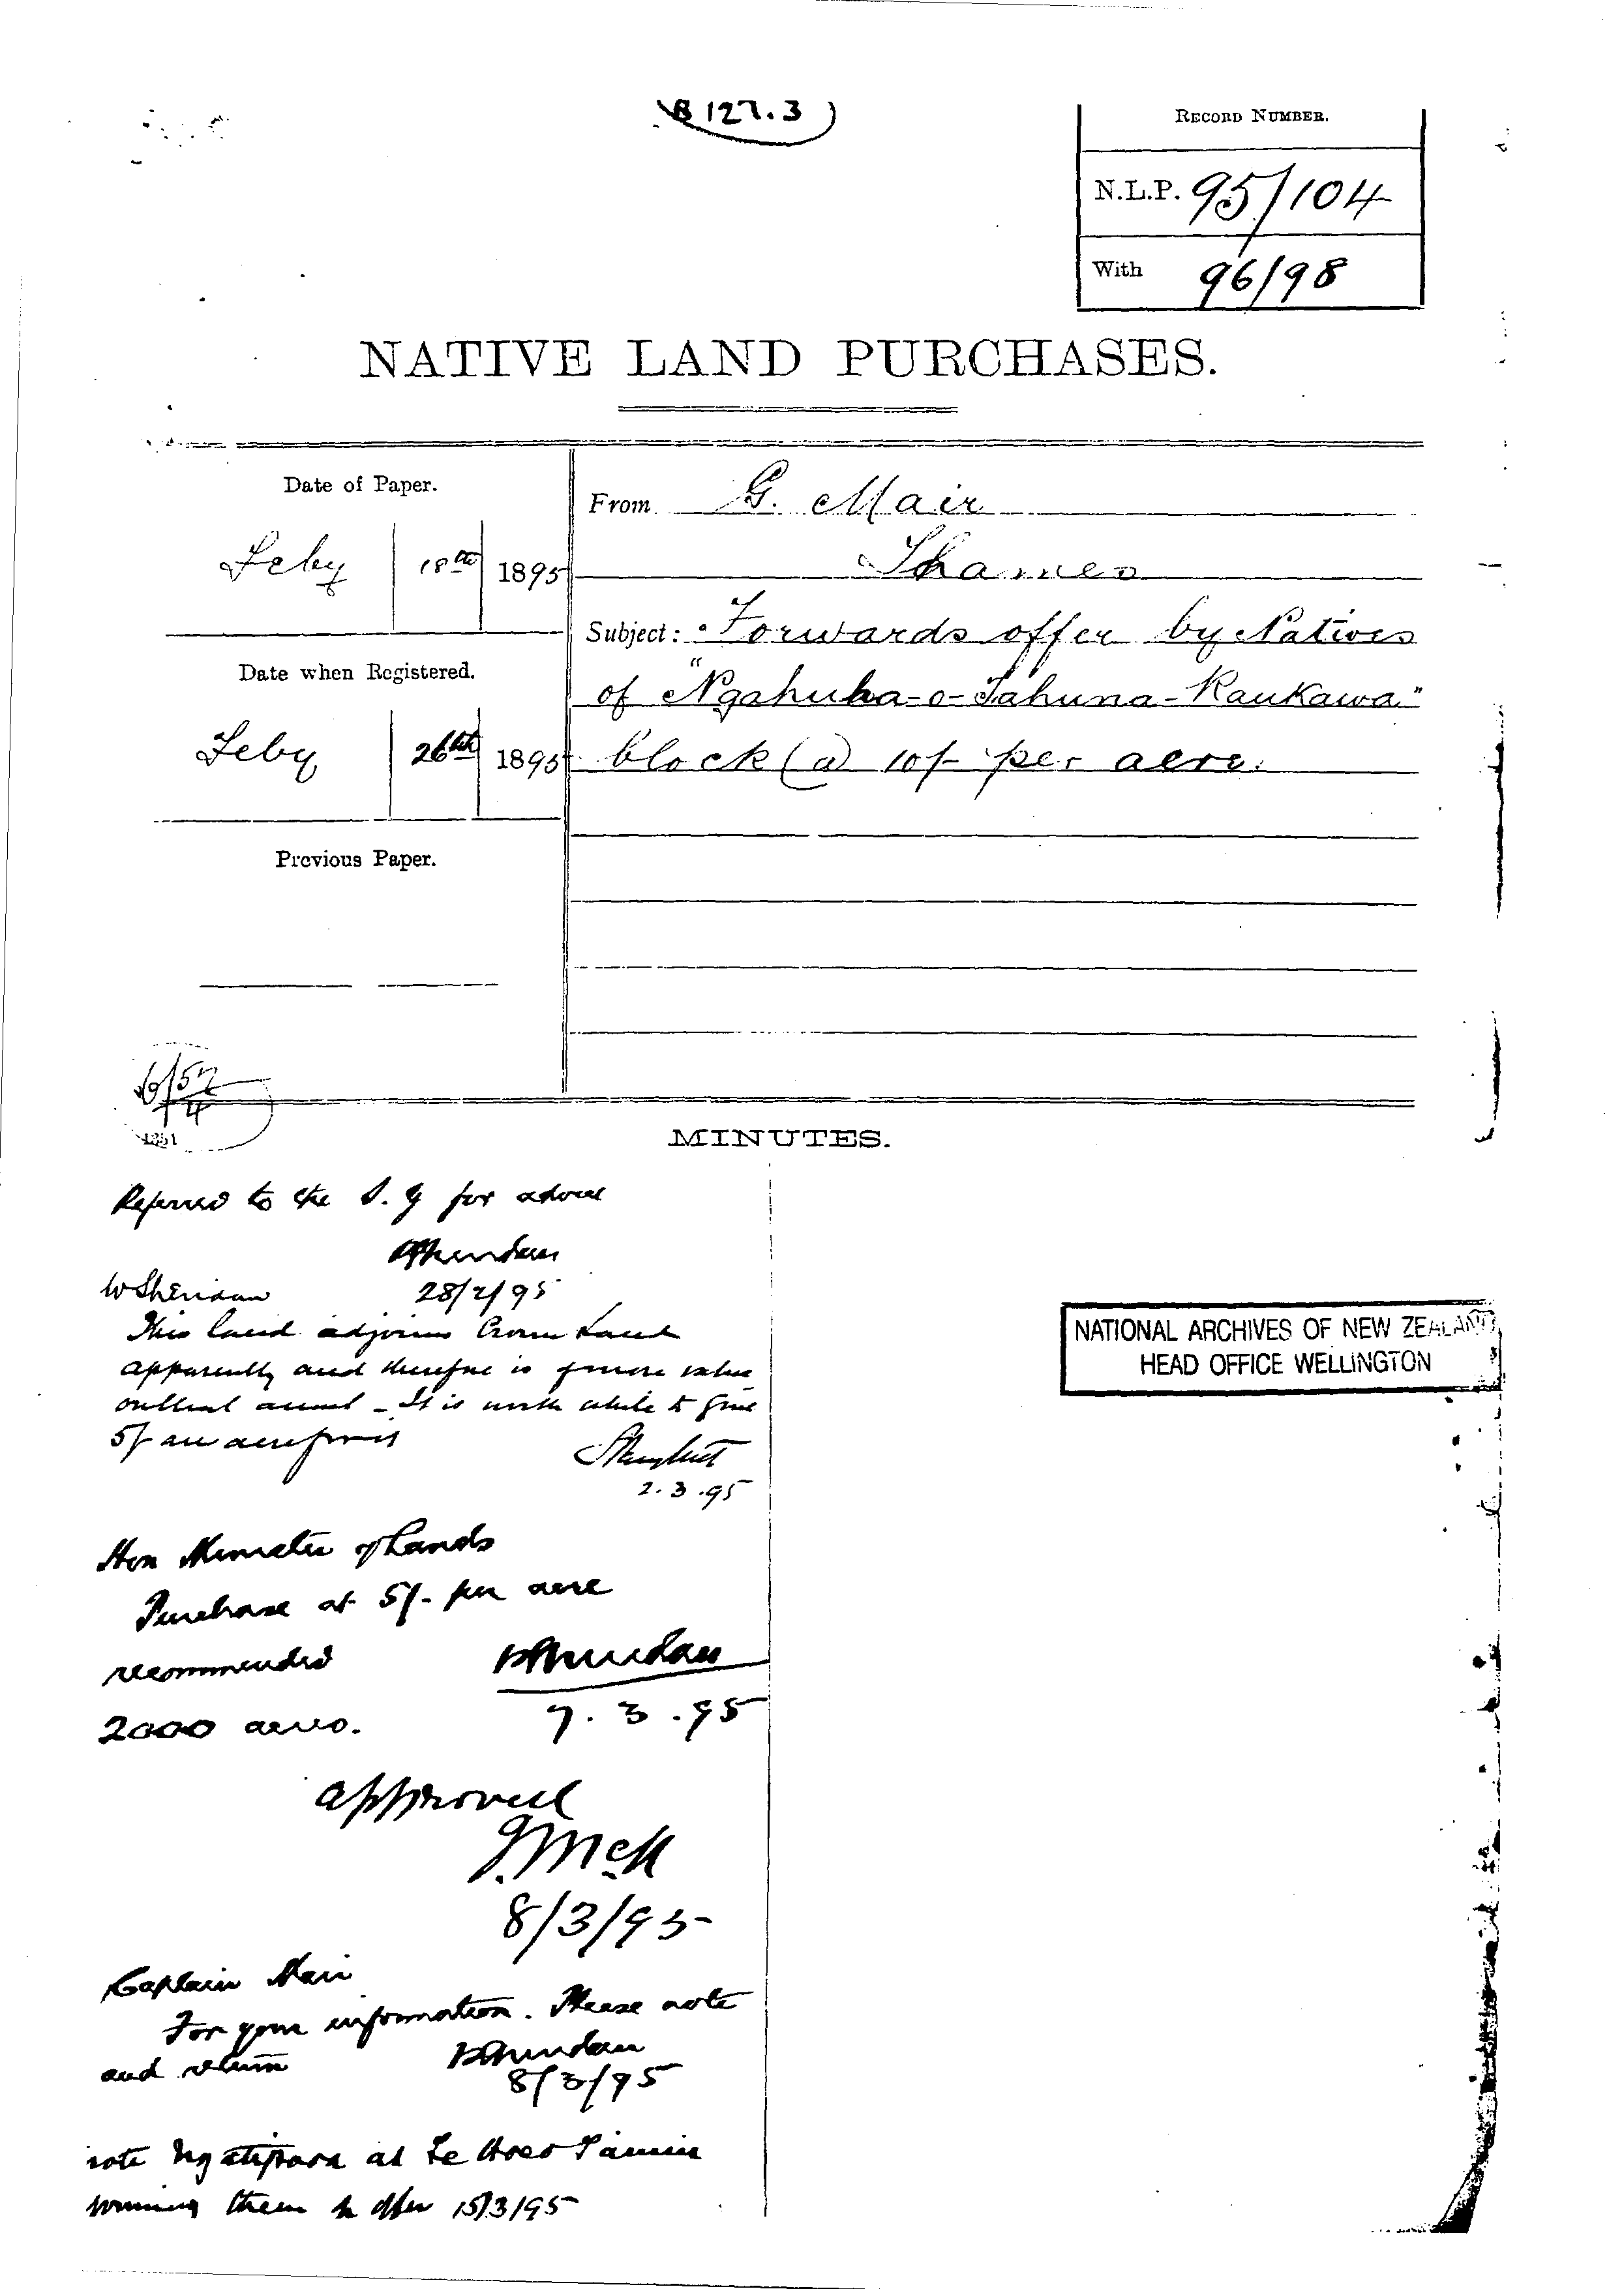 B 127.3
RECORD NUMBER.
N.L.P. 95/104
With 96/98
NATIVE LAND PURCHASES.
Date of Paper.
Feby 18th 1895
Date when Registered.
Feby 26th 1895
Previous Paper.
From G. Mair
Thames
Subject: Forwards offer by Natives
of "Ngahuha-o-Tahuna-Raukawa"
block @ 10/- per acre.
1351
MINUTES.
Referred to the S. G for advice
PSheridan
28/2/95
W Sheridan
This land adjoins Crown Land
apparently and therefore is of more value
on that account - It is worth while to give
5/- an acre for it
2.3.95
NATIONAL ARCHIVES OF NEW ZEALAND
HEAD OFFICE WELLINGTON
Hon Minister of Lands
Purchase at 5/- per acre
recommended
PSheridan
2000 acres.
7.3.95
approved
J. McK
8/3/95
Captain Mair
For your information. Please note
and return
PSheridan
8/3/95
at Te Hoe o Tainui
them offer 15/3/95